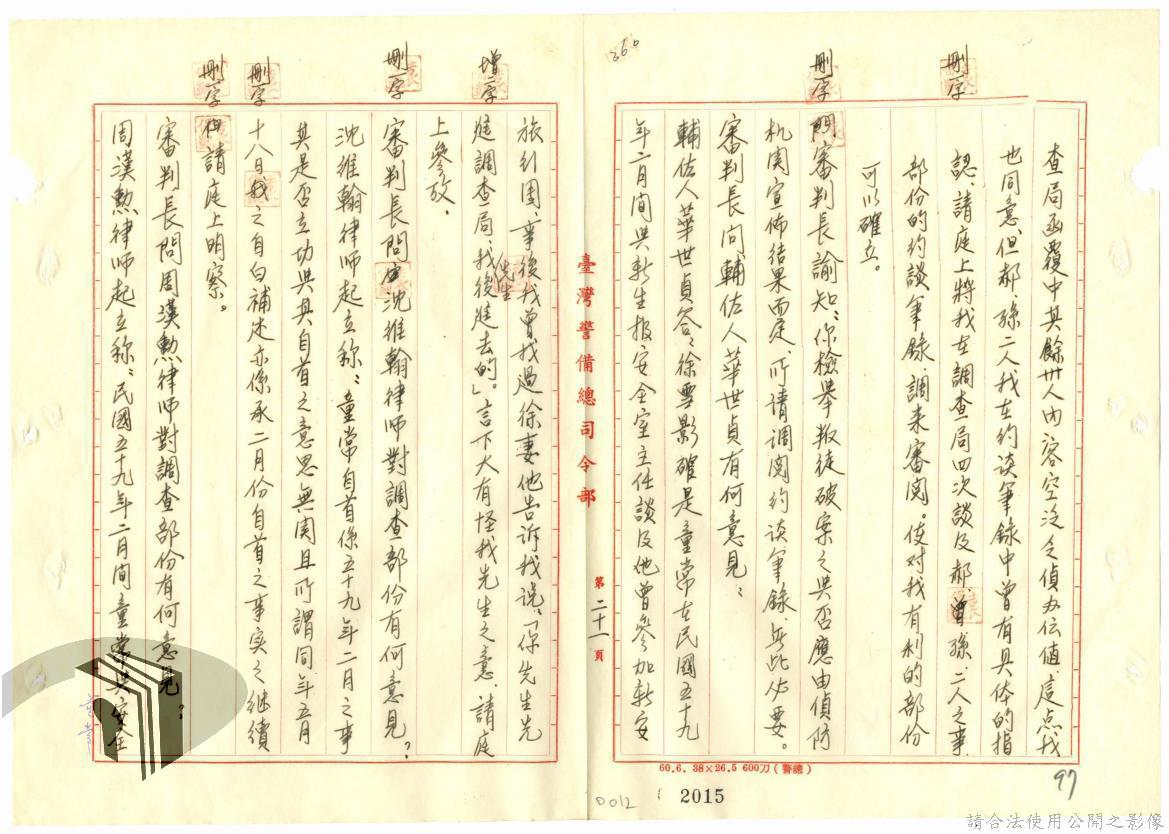 刪一字
刪一字
查局函覆中其餘卅人內容空泛乏偵办佐值這点我
也同意、但郝、孫二人我在約谈笔錄中曾有具体的指
認、請庭上將我在調查局四次談及郝、曾孫、二人之事
部份的約談筆錄、調来審閱。使对我有利的部份
可以確立。
問審判長諭知：你檢举叛徒破案之與否應由偵防
机関宣佈結果而定、所请调阅约谈筆錄、無此必要。
審判長问、輔佐人華世貞有何意見：
輔佐人華世貞答：徐雪影確是童常在民國五十九
年二月间與新生报安全室主任談及他曾參加新安
97
臺灣警備總司令部
第二十一頁
360
增二字
刪一字
刪一字
刪一字
旅引園、事後我曾找過徐妻、他告訴我说、「你先生先
進調查局、我先生後進去的。」言下大有怪我先生之意、請庭
上參攷、
審判長問由沈維翰律师對調查部份有何意見？
沈維翰律师起立称：童常自首係五十九年二月之事
其是否立功與其自首之意思無関且所謂同年五月
十八日我之自白補述亦係承二月份自首之事实之继續
但請庭上明察。
審判長問周漢勲律师對調查部份有何意見？
周漢勲律师起立称：民國五十九年二月间童常與安全
童常
60.6. 38×26.5 600刀(警總)
0012
2015
請合法使用公開之影像